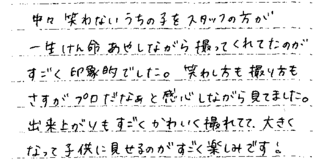 中々 笑わないうちの子をスタッフの方が
一生けん命 あやしながら 撮ってくれてたのが
すごく 印象的でした。 笑わし方も 撮り方も
さすが プロだなぁと 感心しながら 見てました。
出来上がりも すごく かわいく 撮れてて、大きく
なって 子供に 見せるのが すごく 楽しみです!